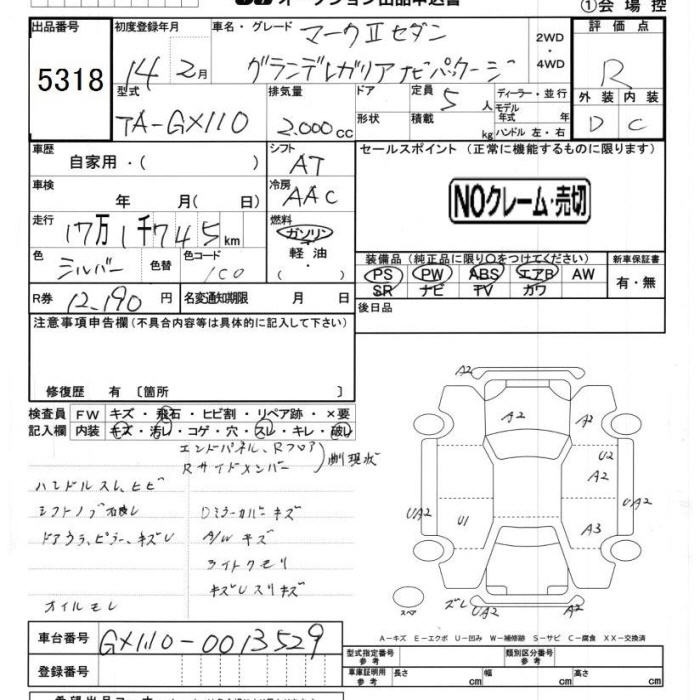 オークション出品申込書
①会場控
出品番号
5318
初度登録年月
14 2月
車名・グレード
マークⅡセダン
グランデレガリアナビパッケージ
2WD
・
4WD
評価点
R
外装 内装
D C
型式
TA-GX110
排気量
2.000cc
ドア
形状
定員 5 人
積載 kg
ディーラー・並行
モデル年式 年
ハンドル 左・右
車歴
自家用・( )
シフト
AT
セールスポイント(正常に機能するものに限ります)
NOクレーム・売切
車検
年 月( 日)
冷房
AAC
走行
17万1千745km
燃料
ガソリン
・
軽油
色
シルバー
色替
色コード
1C0
装備品(純正品に限り○をつけてください)
PS PW ABS エアB AW
SR ナビ TV カワ
新車保証書
有・無
R券 12,190円
名変通知期限 月 日
後日品
注意事項申告欄(不具合内容等は具体的に記入して下さい)
修復歴 有〔箇所 〕
検査員
記入欄
FW キズ・飛石・ヒビ割・リペア跡・×要
内装 キズ・汚レ・コゲ・穴・スレ・キレ・破レ
エンドパネル、Rフロア
Rサイドメンバー
現状
ハンドルスレ、ヒビ
シフトノブ
Dミラーカバーキズ
ドアウラ、ピラー、キズレ
A/Wキズ
ライトクモリ
キズレスリキズ
オイルモレ
A2
A2
A2
U2
A2
UA2
U1
A3
UA2
スペア
ズレ
UA2
A2
A-キズ E-エクボ U-凹み W-補修跡 S-サビ C-腐食 XX-交換済
車台番号
GX110-0013529
登録番号
型式指定番号
参考
類別区分番号
参考
車庫証明用
参考
長さ
幅
高さ